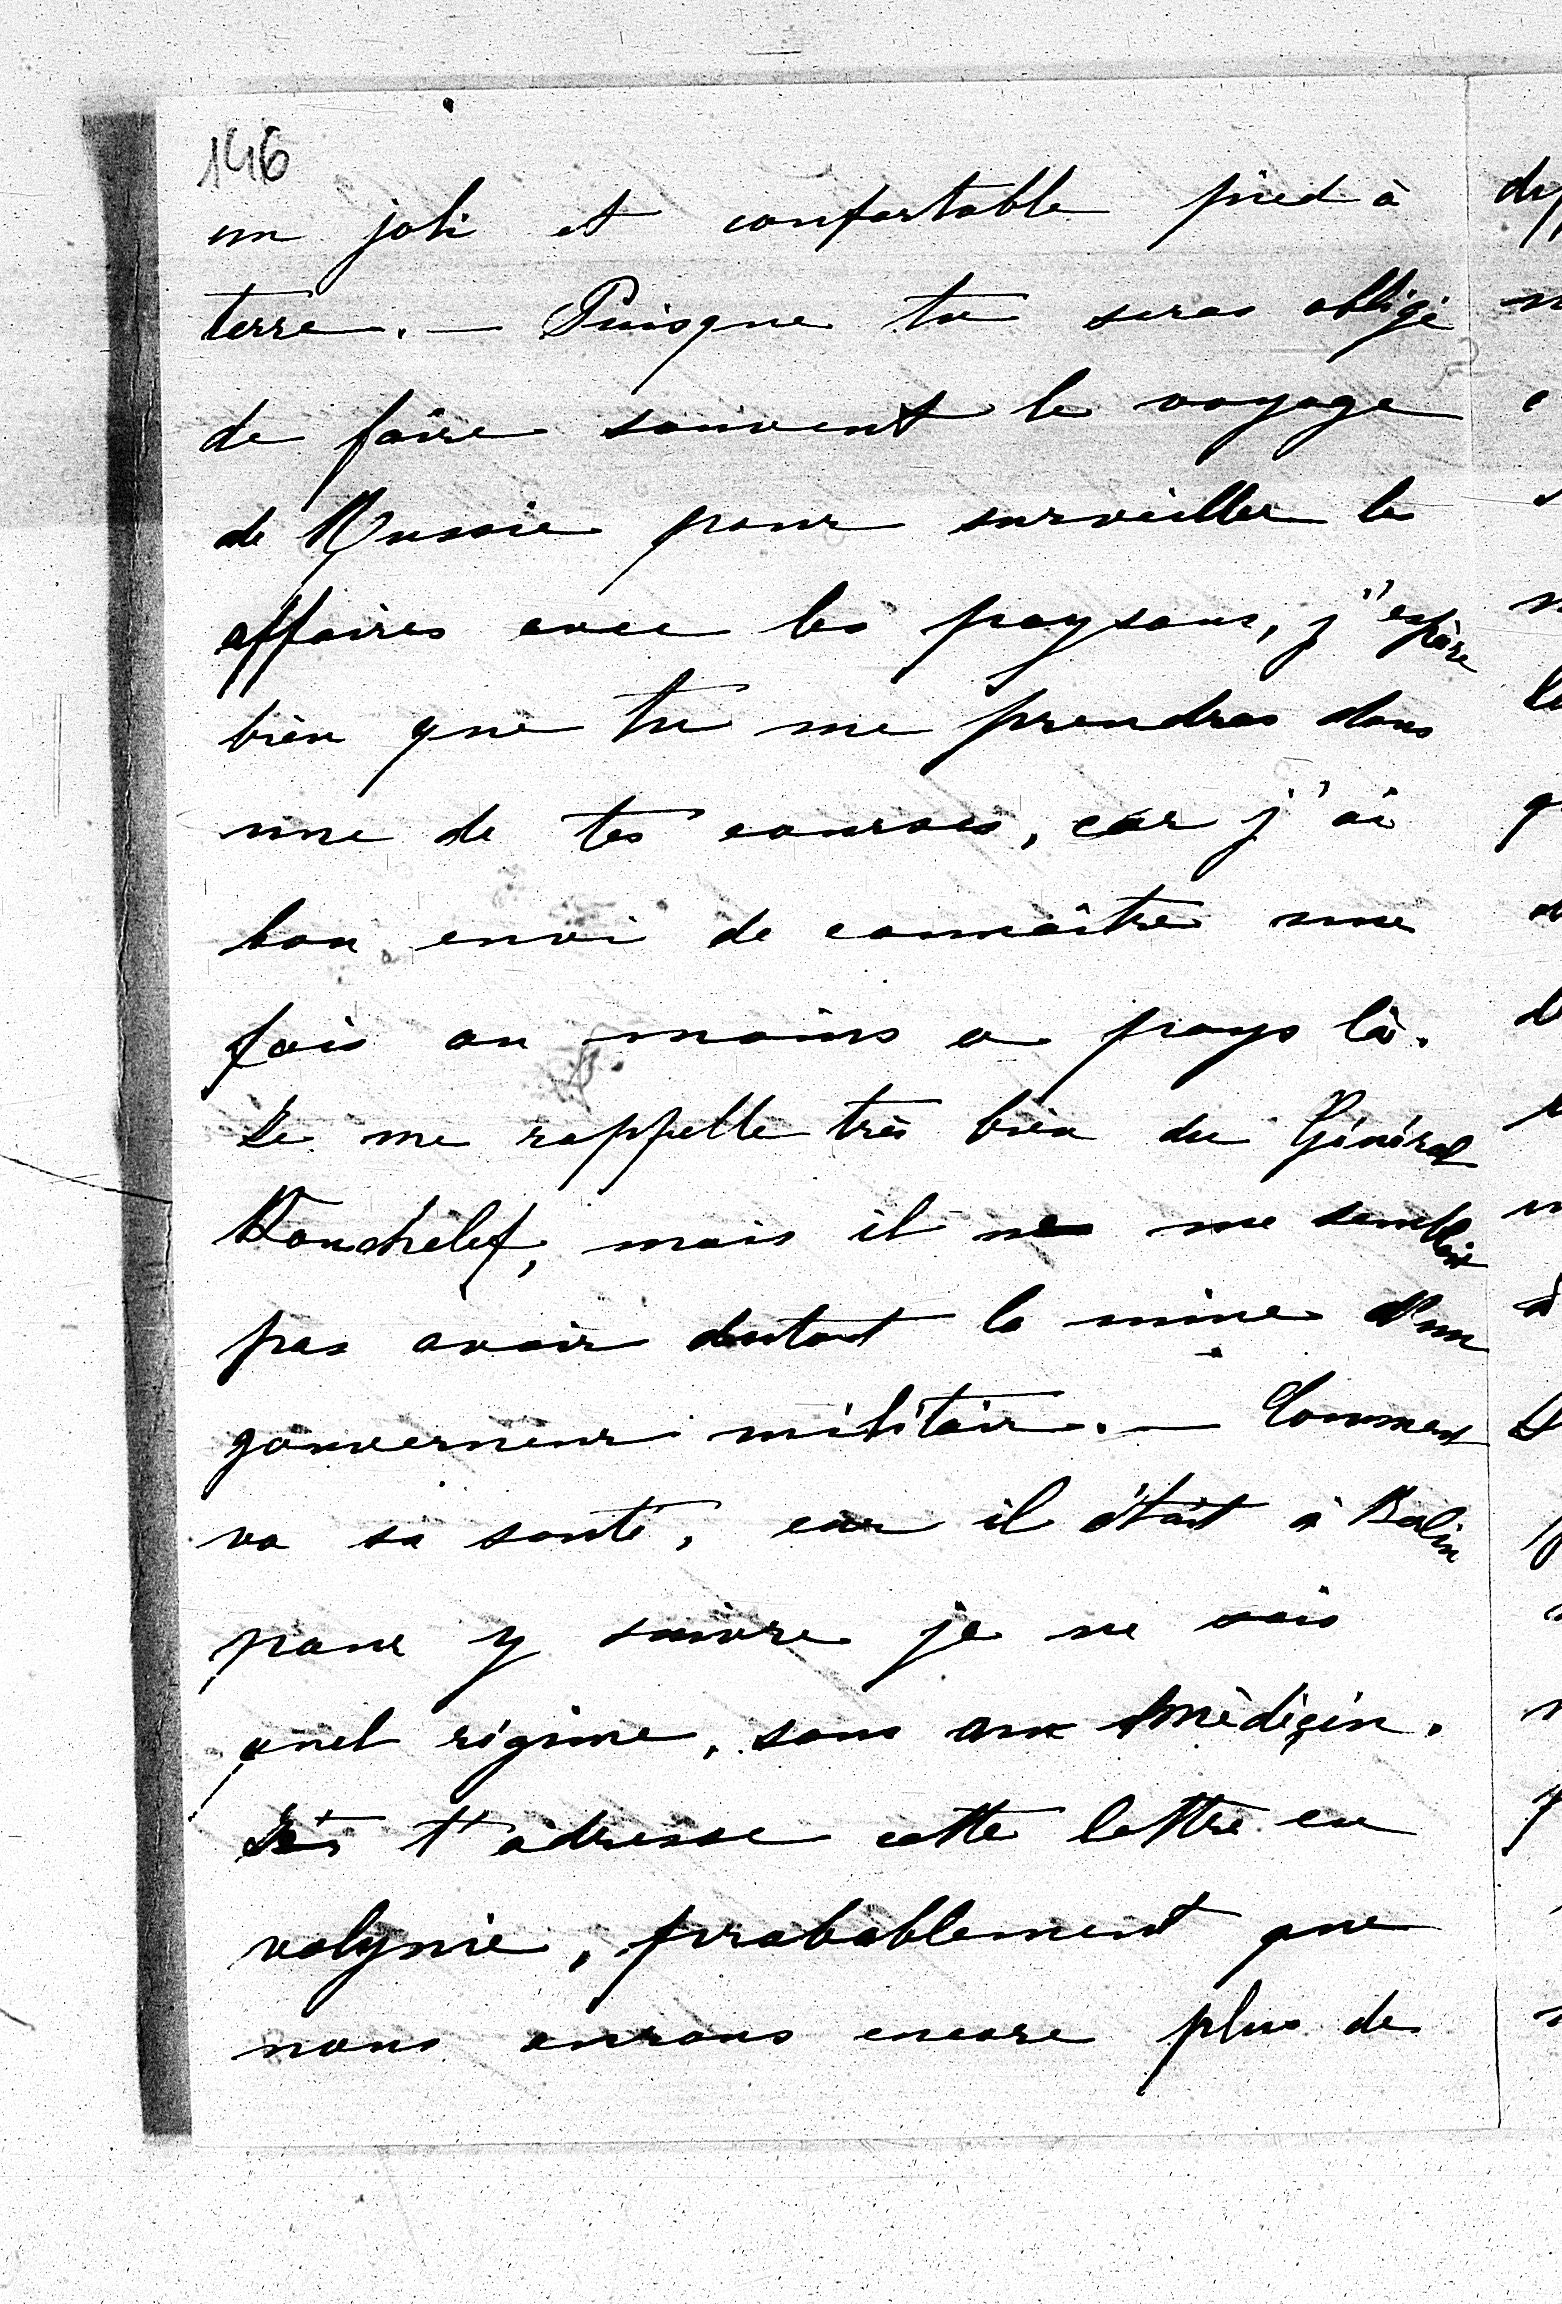 146
un joli et confortable pied à
terre. — Puisque tu seras obligé
de faire souvent le voyage
de Russie pour surveiller le
affaires avec les paysans, j'espère
bien que tu me prendras dans
une de tes courses, car j'ai
bon envi de connaître une
fois au moins ce pays là.
Je me rappelle très bien du Général
mais il ne me semblait
pas avoir la mine d'un
gouverneur militair. — Comment
va sa santé, car il était à Berlin
pour y suivre je ne sais
quel régime, sous un médiçin.
Je t'adresse cette lettre en
volynie, probablement que
nous aurons encore plus de